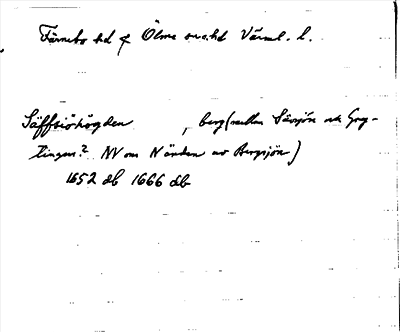 Färnebo hd & Ölme sn o. hd Värml. l.
Säffsiöhögden , berg (mellan Sävsjön och Gryt-
tingen? NV om N änden av Bergsjön)
1652 db 1666 db